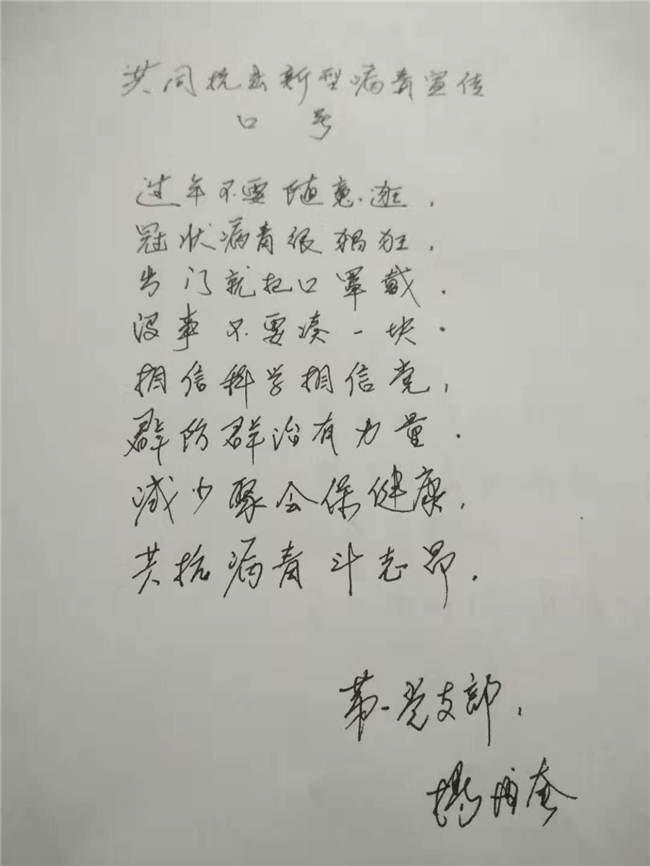 共同抗击新型病毒宣传
口号
过年不要随意逛,
冠状病毒很猖狂,
出门就把口罩戴.
没事不要凑一块.
相信科学相信党,
群防群治有力量.
减少聚会保健康,
共抗病毒斗志昂.
第一党支部,